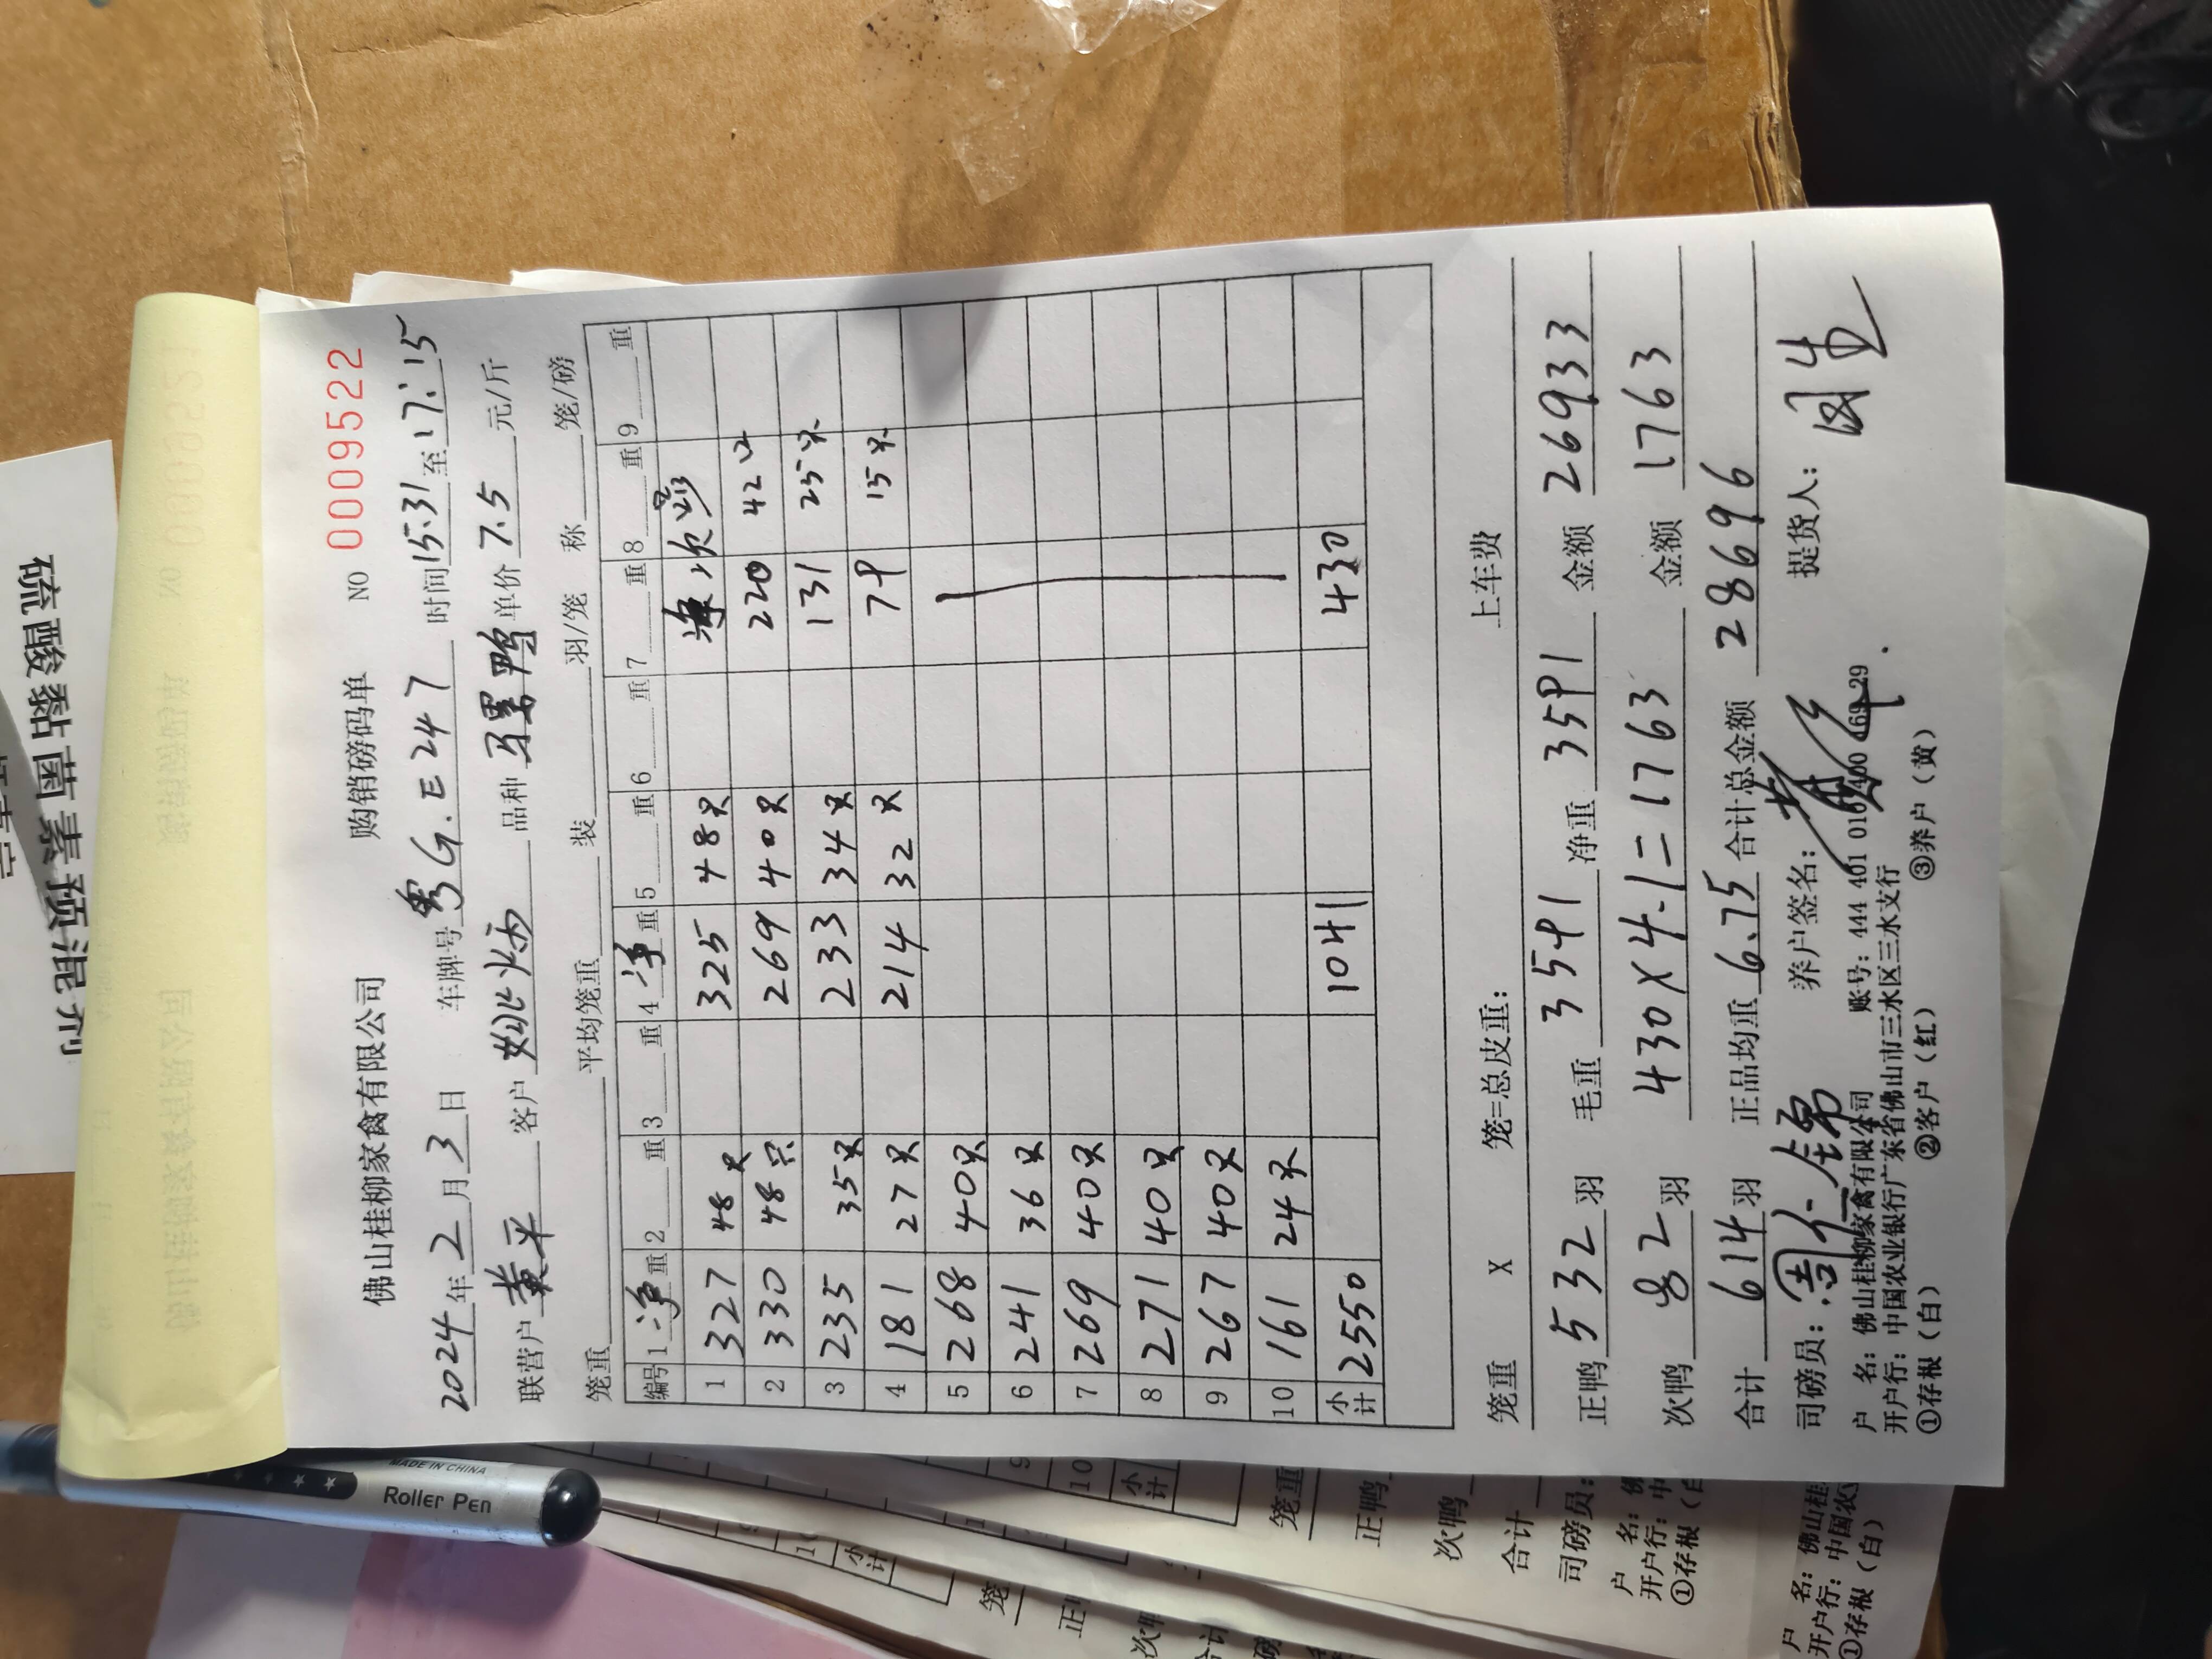 佛山桂柳家禽有限公司 购销磅码单 NO 0009522
2024年2月3日 车牌号粤G.E247 时间15:31至17:15
联营户黄平 客户姚炳 品种 单价7.5元/斤
笼重 平均笼重 装 羽/笼 称 笼/磅
编号 1净重 2 重 3 重 4净重 5 重 6 重 7 重 8 重 9 重
次
1 327 48只 325 48只 220 42只
2 330 48只 269 40只 131 25只
3 235 35只 233 34只 79 15只
4 181 27只 214 32只
5 268 40只
6 241 36只
7 269 40只
8 271 40只
9 267 40只
10 161 24只
小计 2550 1041 430
笼重 X 笼=总皮重: 上车费
正鸭532羽 毛重3591 净重3591 金额26933
次鸭82羽 430×4.1=1763 金额1763
合计614羽 正品均重6.75 合计总金额28696
司磅员: 养户签名: 提货人:
户 名: 佛山桂柳家禽有限公司 账号: 444 401 010 400 169 29
开户行: 中国农业银行广东省佛山市三水区三水支行
①存根(白) ②客户(红) ③养户(黄)
硫酸黏菌素预混剂
MADE IN CHINA
Roller Pen
9
10
小计
笼重
正鸭
次鸭
合计
司磅员:
户 名: 佛
开户行: 中
①存根(白
小计
笼
户 名: 佛山桂
开户行: 中国农
①存根(白)